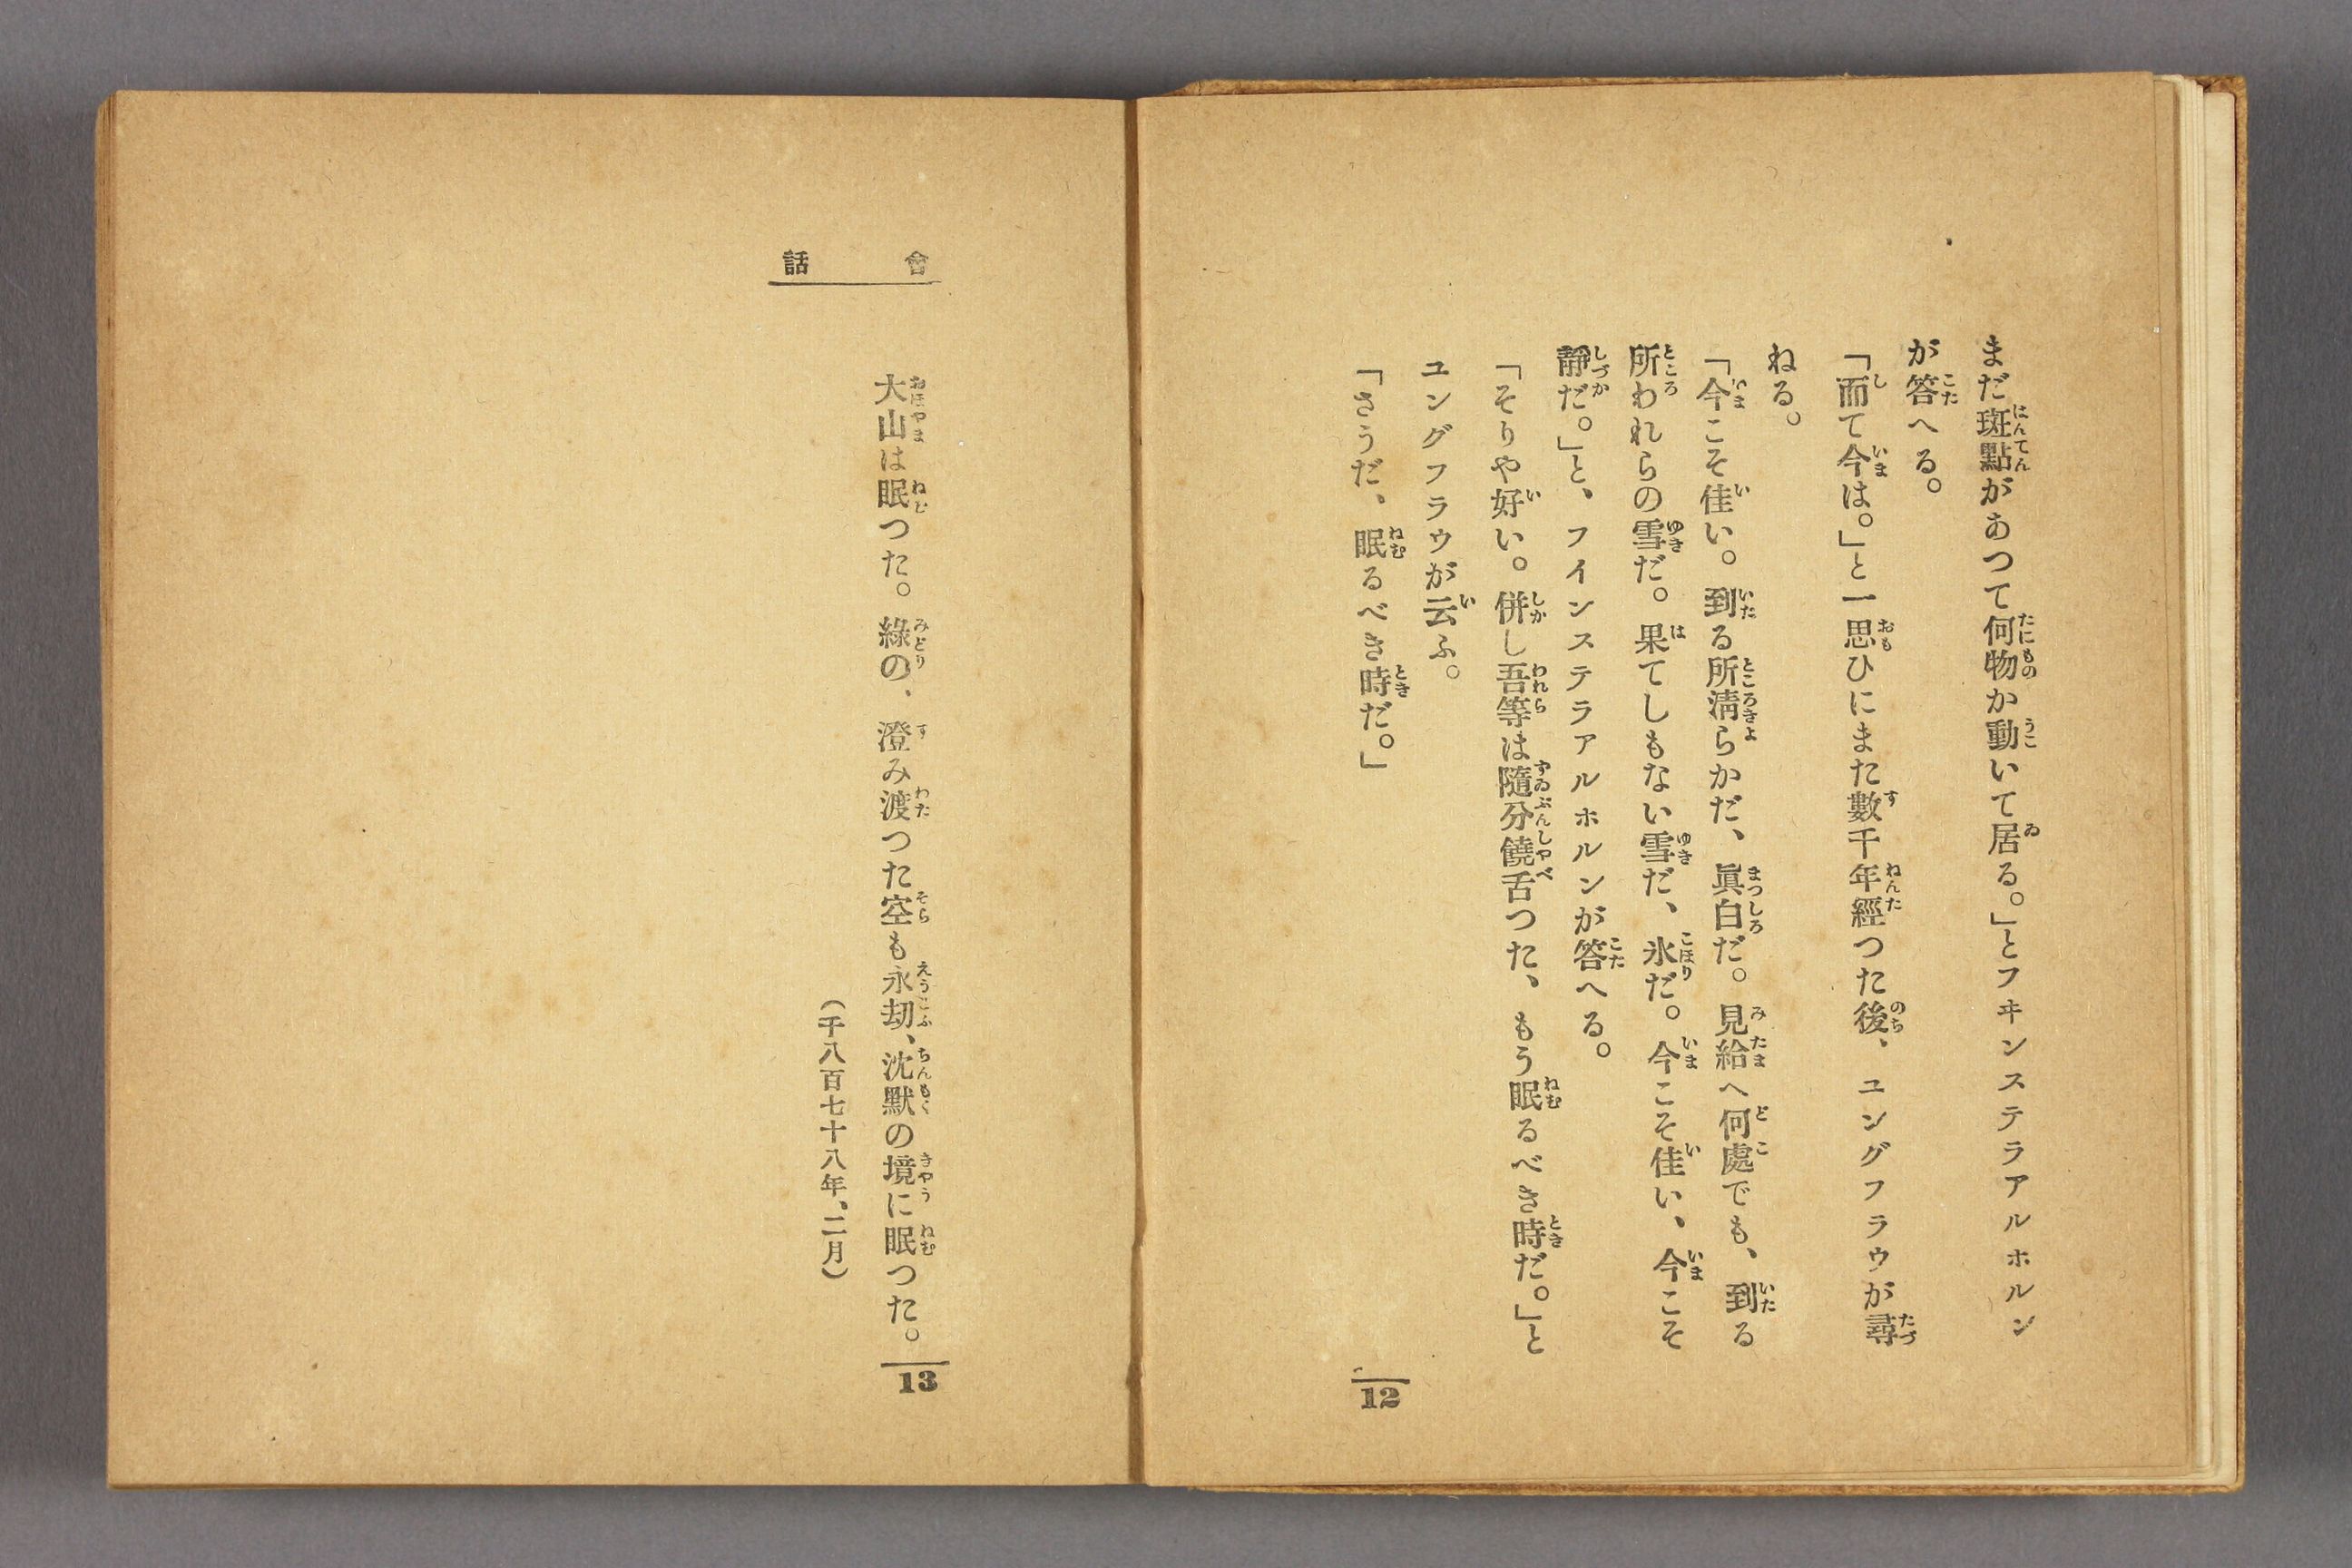 まだ斑點があつて何物か動いて居る。」とフヰンステラアルホルン
が答へる。
「而て今は。」と一思ひにまた數千年經つた後、ユングフラウが尋
ねる。
「今こそ佳い。到る所淸らかだ、眞白だ。見給へ何處でも、到る
所われらの雪だ。果てしもない雪だ、氷だ。今こそ佳い、今こそ
靜だ。」と、フインステラアルホルンが答へる。
「そりや好い。併し吾等は隨分饒舌つた、もう眠るべき時だ。」と
ユングフラウが云ふ。
「さうだ、眠るべき時だ。」
12
會話
大山は眠つた。綠の、澄み渡つた空も永劫、沈默の境に眠つた。
(千八百七十八年、二月)
13